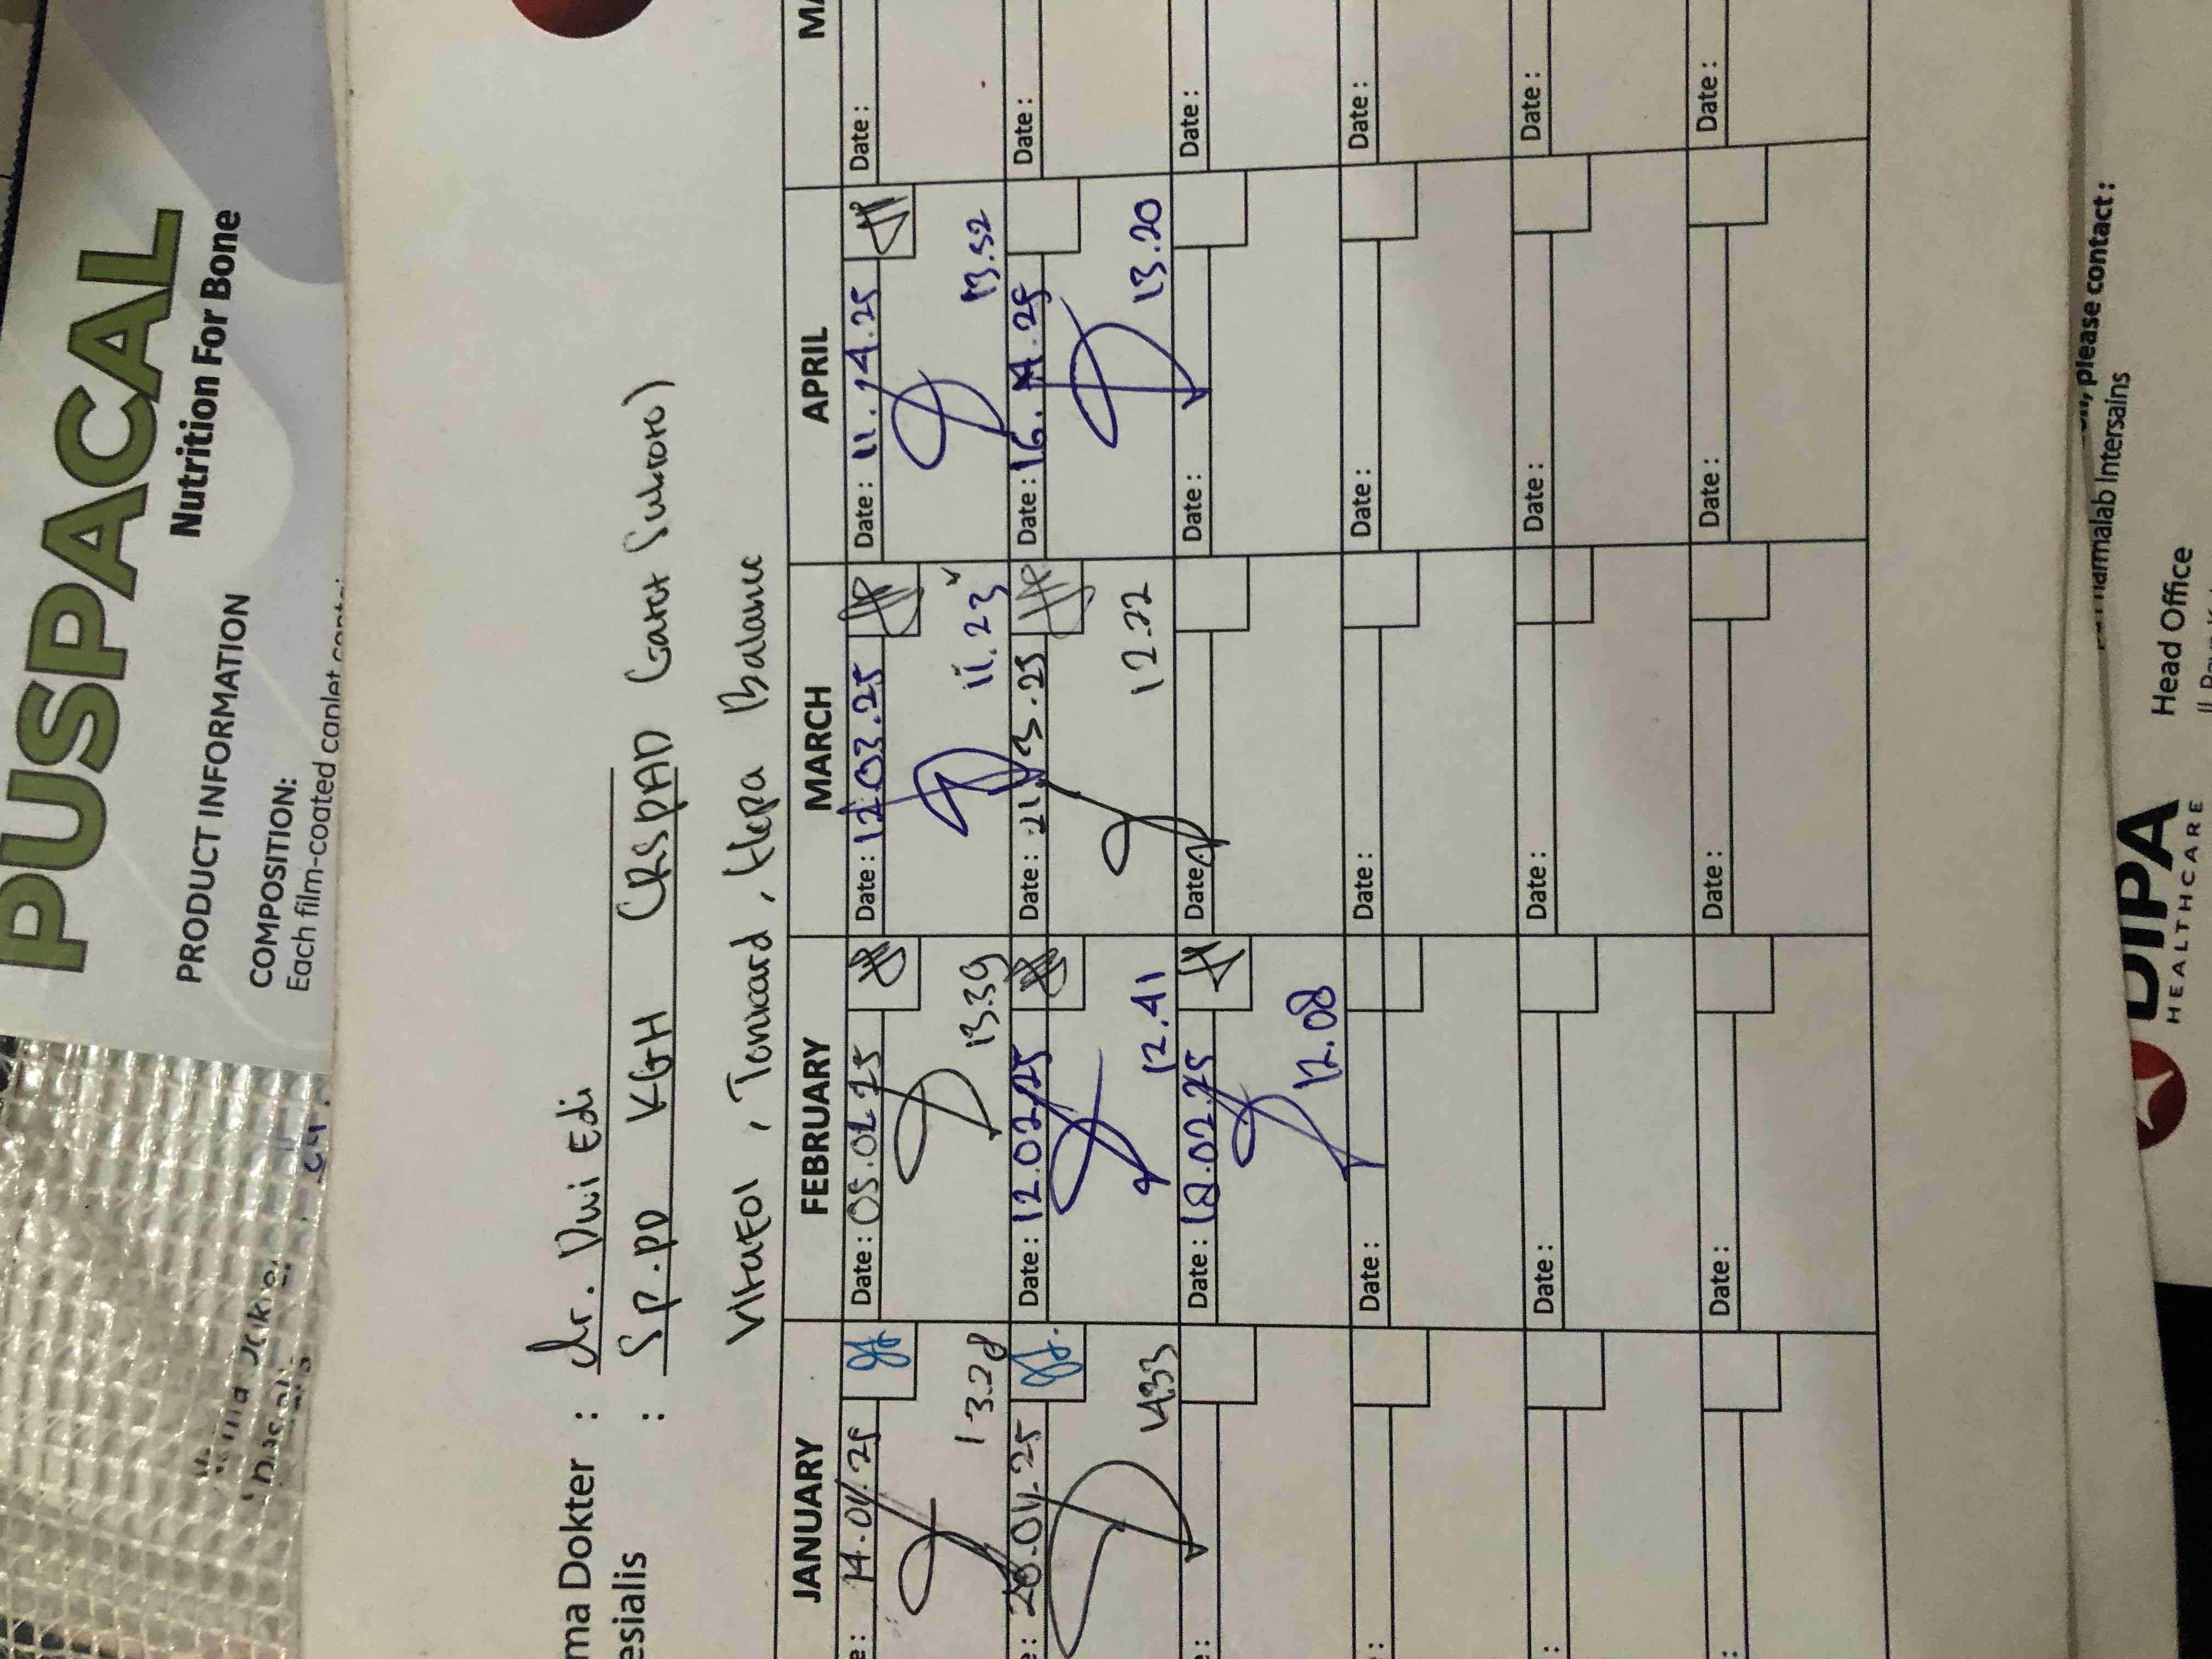 PUSPACAL
Nutrition For Bone
PRODUCT INFORMATION
COMPOSITION:
Each film-coated caplet
ma Dokter : dr. Dwi Edi
esialis : Sp.PD KGH (RSPAD Gatot Subroto)
, Tonicard, Hepa Balance
JANUARY FEBRUARY MARCH APRIL MA
e: 14.01.25 Date: 05.02.25 Date: 12.03.25 Date: 11.04.25 Date:
13.28 13.39 11.23 13.52
e: 20.01.25 Date: 12.02.25 Date: 21.03.25 Date: 16.04.25 Date:
14.33 12.41 12.22 13.20
: Date: 18.02.25 Date: Date: Date:
12.08
: Date: Date: Date: Date:
: Date: Date: Date: Date:
: Date: Date: Date: Date:
, please contact:
Intersains
DIPA
HEALTHCARE
Head Office